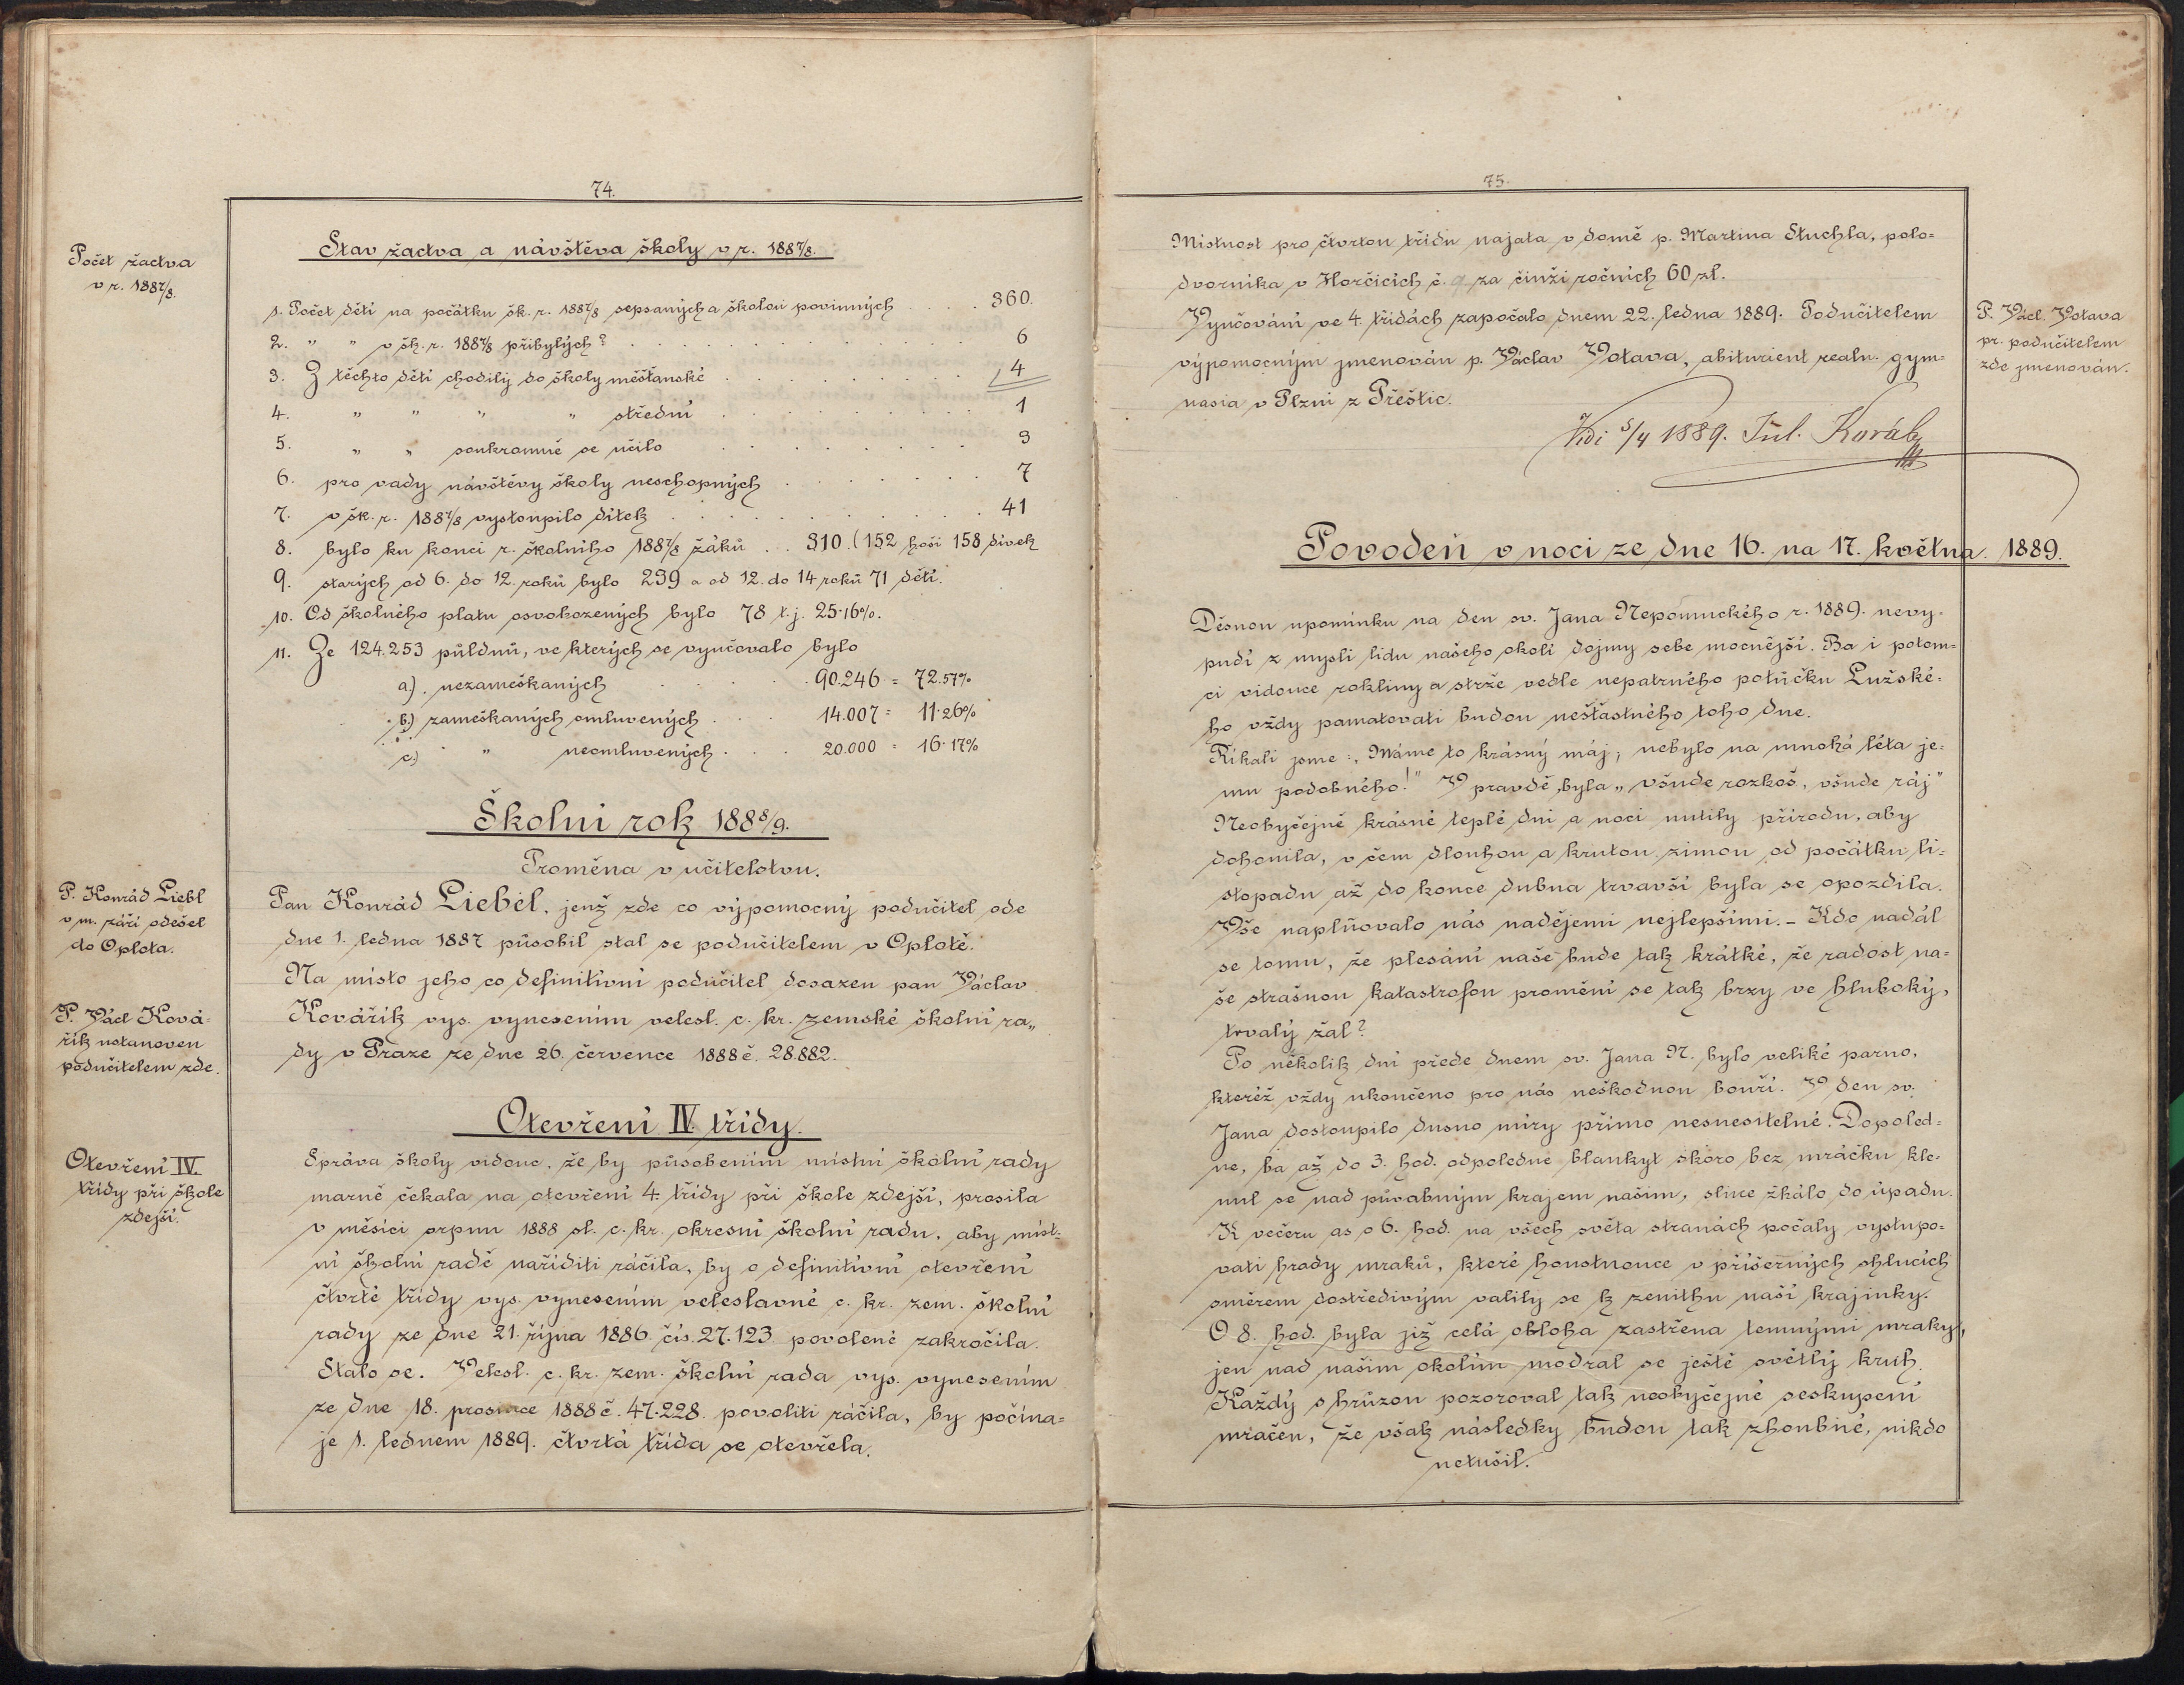 74.
Počet žactva
v r. 1887/8.
Stav žactva a návštěva školy v r. 1887/8.
1. Počet dětí na počátku šk. r. 1887/8 sepsaných a školou povinných . . . 360.
2. " " v šk. r. 1887/8 přibylých? . . . 6
3. Z těchto dětí chodily do školy měšťanské . . . 4
4. " " " " střední . . . 1
5. " " soukromně se učilo . . . 3
6. pro vady návštěvy školy neschopných . . . 7
7. v šk. r. 1887/8 vystoupilo dítek . . . 41
8. bylo ku konci r. školního 1887/8 žáků . . 310. (152 hoši 158 dívek
9. starých od 6. do 12. roků bylo 239 a od 12. do 14 roků 71 dětí.
10. Od školného platu osvobozených bylo 78 t. j. 25·16%.
11. Ze 124.253 půldnů, ve kterých se vyučovalo bylo
a). nezameškaných . . . 90.246 = 72.57%
b.) zameškaných omluvených . . . 14.007 = 11·26%
c.) " neomluvených . . . 20.000 = 16·17%
Školní rok 1888/9.
Proměna v učitelstvu.
P. Konrád Liebl
v m. září odešel
do Oplota.
Pan Konrád Liebel, jenž zde co výpomocný podučitel ode
dne 1. ledna 1887 působil stal se podučitelem v Oplotě.
P. Václ Ková-
řík ustanoven
podučitelem zde.
Na místo jeho co definitivní podučitel dosazen pan Václav
Kovářík vys. vynesením velesl. c. kr. zemské školní ra„
dy v Praze ze dne 26. července 1888 č. 28.882.
Otevření IV. třídy.
Otevření IV.
třídy při škole
zdejší.
Správa školy vidouc, že by působením místní školní rady
marně čekala na otevření 4 třídy při škole zdejší, prosila
v měsíci srpnu 1888 sl. c. kr. okresní školní radu, aby míst-
ní školní radě naříditi ráčila, by o definitivní otevření
čtvrté třídy vys. vynesením veleslavné c. kr. zem. školní
rady ze dne 21. října 1886. čís. 27.123 povolené zakročila.
Stalo se. Velesl. c. kr. zem. školní rada vys. vynesením
ze dne 18. prosince 1888 č. 47.228. povoliti ráčila, by počína=
je 1. lednem 1889. čtvrtá třída se otevřela.
75.
Místnost pro čtvrtou třídu najata v domě p. Martina Stuchla, polo=
dvorníka v Horčicích č. 9 za činži ročních 60 zl.
P. Václ. Votava
pr. podučitelem
zde jmenován.
Vyučování ve 4. třídách započalo dnem 22. ledna 1889. Podučitelem
výpomocným jmenován p. Václav Votava, abiturient realn. gym-
nasia v Plzni z Přeštic.
Vidi 5/4 1889. Jul. Koráb
Povodeň v noci ze dne 16. na 17. května. 1889.
Děsnou upomínku na den sv. Jana Nepomuckého r. 1889. nevy-
pudí z mysli lidu našeho okolí dojmy sebe mocnější. Ba i potom=
ci vidouce rokliny a strže vedle nepatrného potůčku Lužské-
ho vždy pamatovati budou nešťastného toho dne.
Říkali jsme: „Máme to krásný máj, nebylo na mnohá léta je-
mu podobného!" V pravdě byla „všude rozkoš, všude ráj"
Neobyčejně krásné teplé dni a noci nutily přírodu, aby
dohonila, v čem dlouhou a krutou zimou od počátku li-
stopadu až do konce dubna trvavší byla se opozdila.
Vše naplňovalo nás nadějemi nejlepšími. – Kdo nadál
se tomu, že plesání naše bude tak krátké, že radost na=
še strašnou katastrofou promění se tak brzy ve hluboký,
trvalý žal?
Po několik dní přede dnem sv. Jana N. bylo veliké parno,
kteréž vždy ukončeno pro nás neškodnou bouří. V den sv.
Jana dostoupilo dusno míry přímo nesnesitelné. Dopoled-
ne, ba až do 3. hod. odpoledne blankyt skoro bez mráčku kle-
nul se nad půvabným krajem naším, slnce žhálo do úpadu.
K večeru as o 6. hod. na všech světa stranách počaly vystupo-
vati hrady mraků, které houstnouce v příšerných shlucích
směrem dostředivým valily se k zenithu naší krajinky.
O 8. hod. byla již celá obloha zastřena temnými mraky,
jen nad naším okolím modral se ještě světlý kruh.
Každý s hrůzou pozoroval tak neobyčejné seskupení
mračen, že však následky budou tak zhoubné, nikdo
netušil.